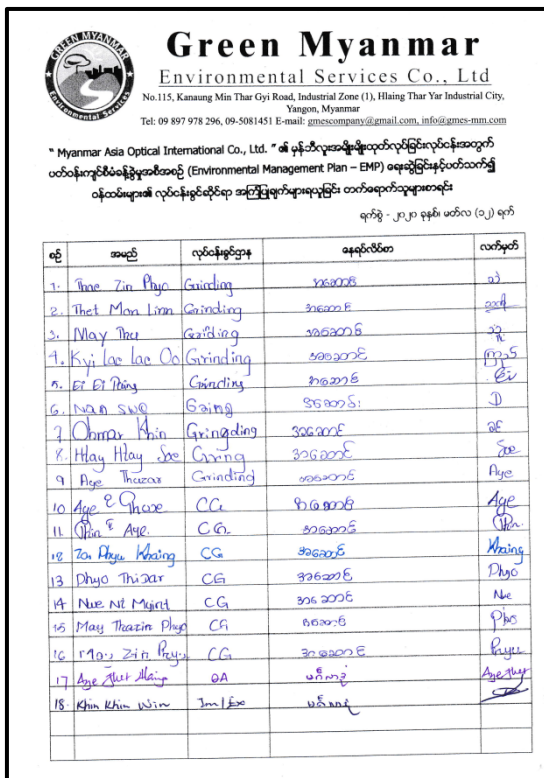 GREEN MYANMAR
Environmental Services
Green Myanmar
Environmental Services Co., Ltd
No.115, Kanaung Min Thar Gyi Road, Industrial Zone (1), Hlaing Thar Yar Industrial City,
Yangon, Myanmar
Tel: 09 897 978 296, 09-5081451 E-mail: gmescompany@gmail.com, info@gmes-mm.com
" Myanmar Asia Optical International Co., Ltd. " ၏ မှန်ဘီလူးအမျိုးမျိုးထုတ်လုပ်ခြင်းလုပ်ငန်းအတွက်
ပတ်ဝန်းကျင်စီမံခန့်ခွဲမှုအစီအစဉ် (Environmental Management Plan – EMP) ရေးဆွဲခြင်းနှင့်ပတ်သက်၍
ဝန်ထမ်းများ၏ လုပ်ငန်းခွင်ဆိုင်ရာ အကြံပြုချက်များရယူခြင်း တက်ရောက်သူများစာရင်း
ရက်စွဲ - ၂၀၂၀ ခုနှစ်၊ မတ်လ (၁၂) ရက်
စဉ် အမည် လုပ်ငန်းခွင်ဌာန နေရပ်လိပ်စာ လက်မှတ်
1. Thae Zin Phyo Grinding အဆောင်
2. Thet Mon Linn Grinding အဆောင်
3. May Thu Grinding အဆောင်
4. Kyi Lac Lac Oo Grinding အဆောင်
5. Ei Ei Paing Grinding အဆောင် Ei
6. Nan Swe အဆောင်
7 Ohmar Khin Gringding အဆောင် ခင်
8. Htay Htay Soe အဆောင် Soe
9 Aye Thazar Grinding အဆောင် Aye
10 Aye CG အဆောင် Aye
11. Aye. CG အဆောင်
12 Phyu Khaing CG အဆောင် Khaing
13 Phyo Thidar CG အဆောင် Phyo
14 Nwe Ni Myint CG အဆောင် Nwe
15 May Thazin Phyo CG အဆောင် Phyo
16 Zin CG အဆောင် Phyu
17 Aye QA
18. Khin Khin Win Im/Ex